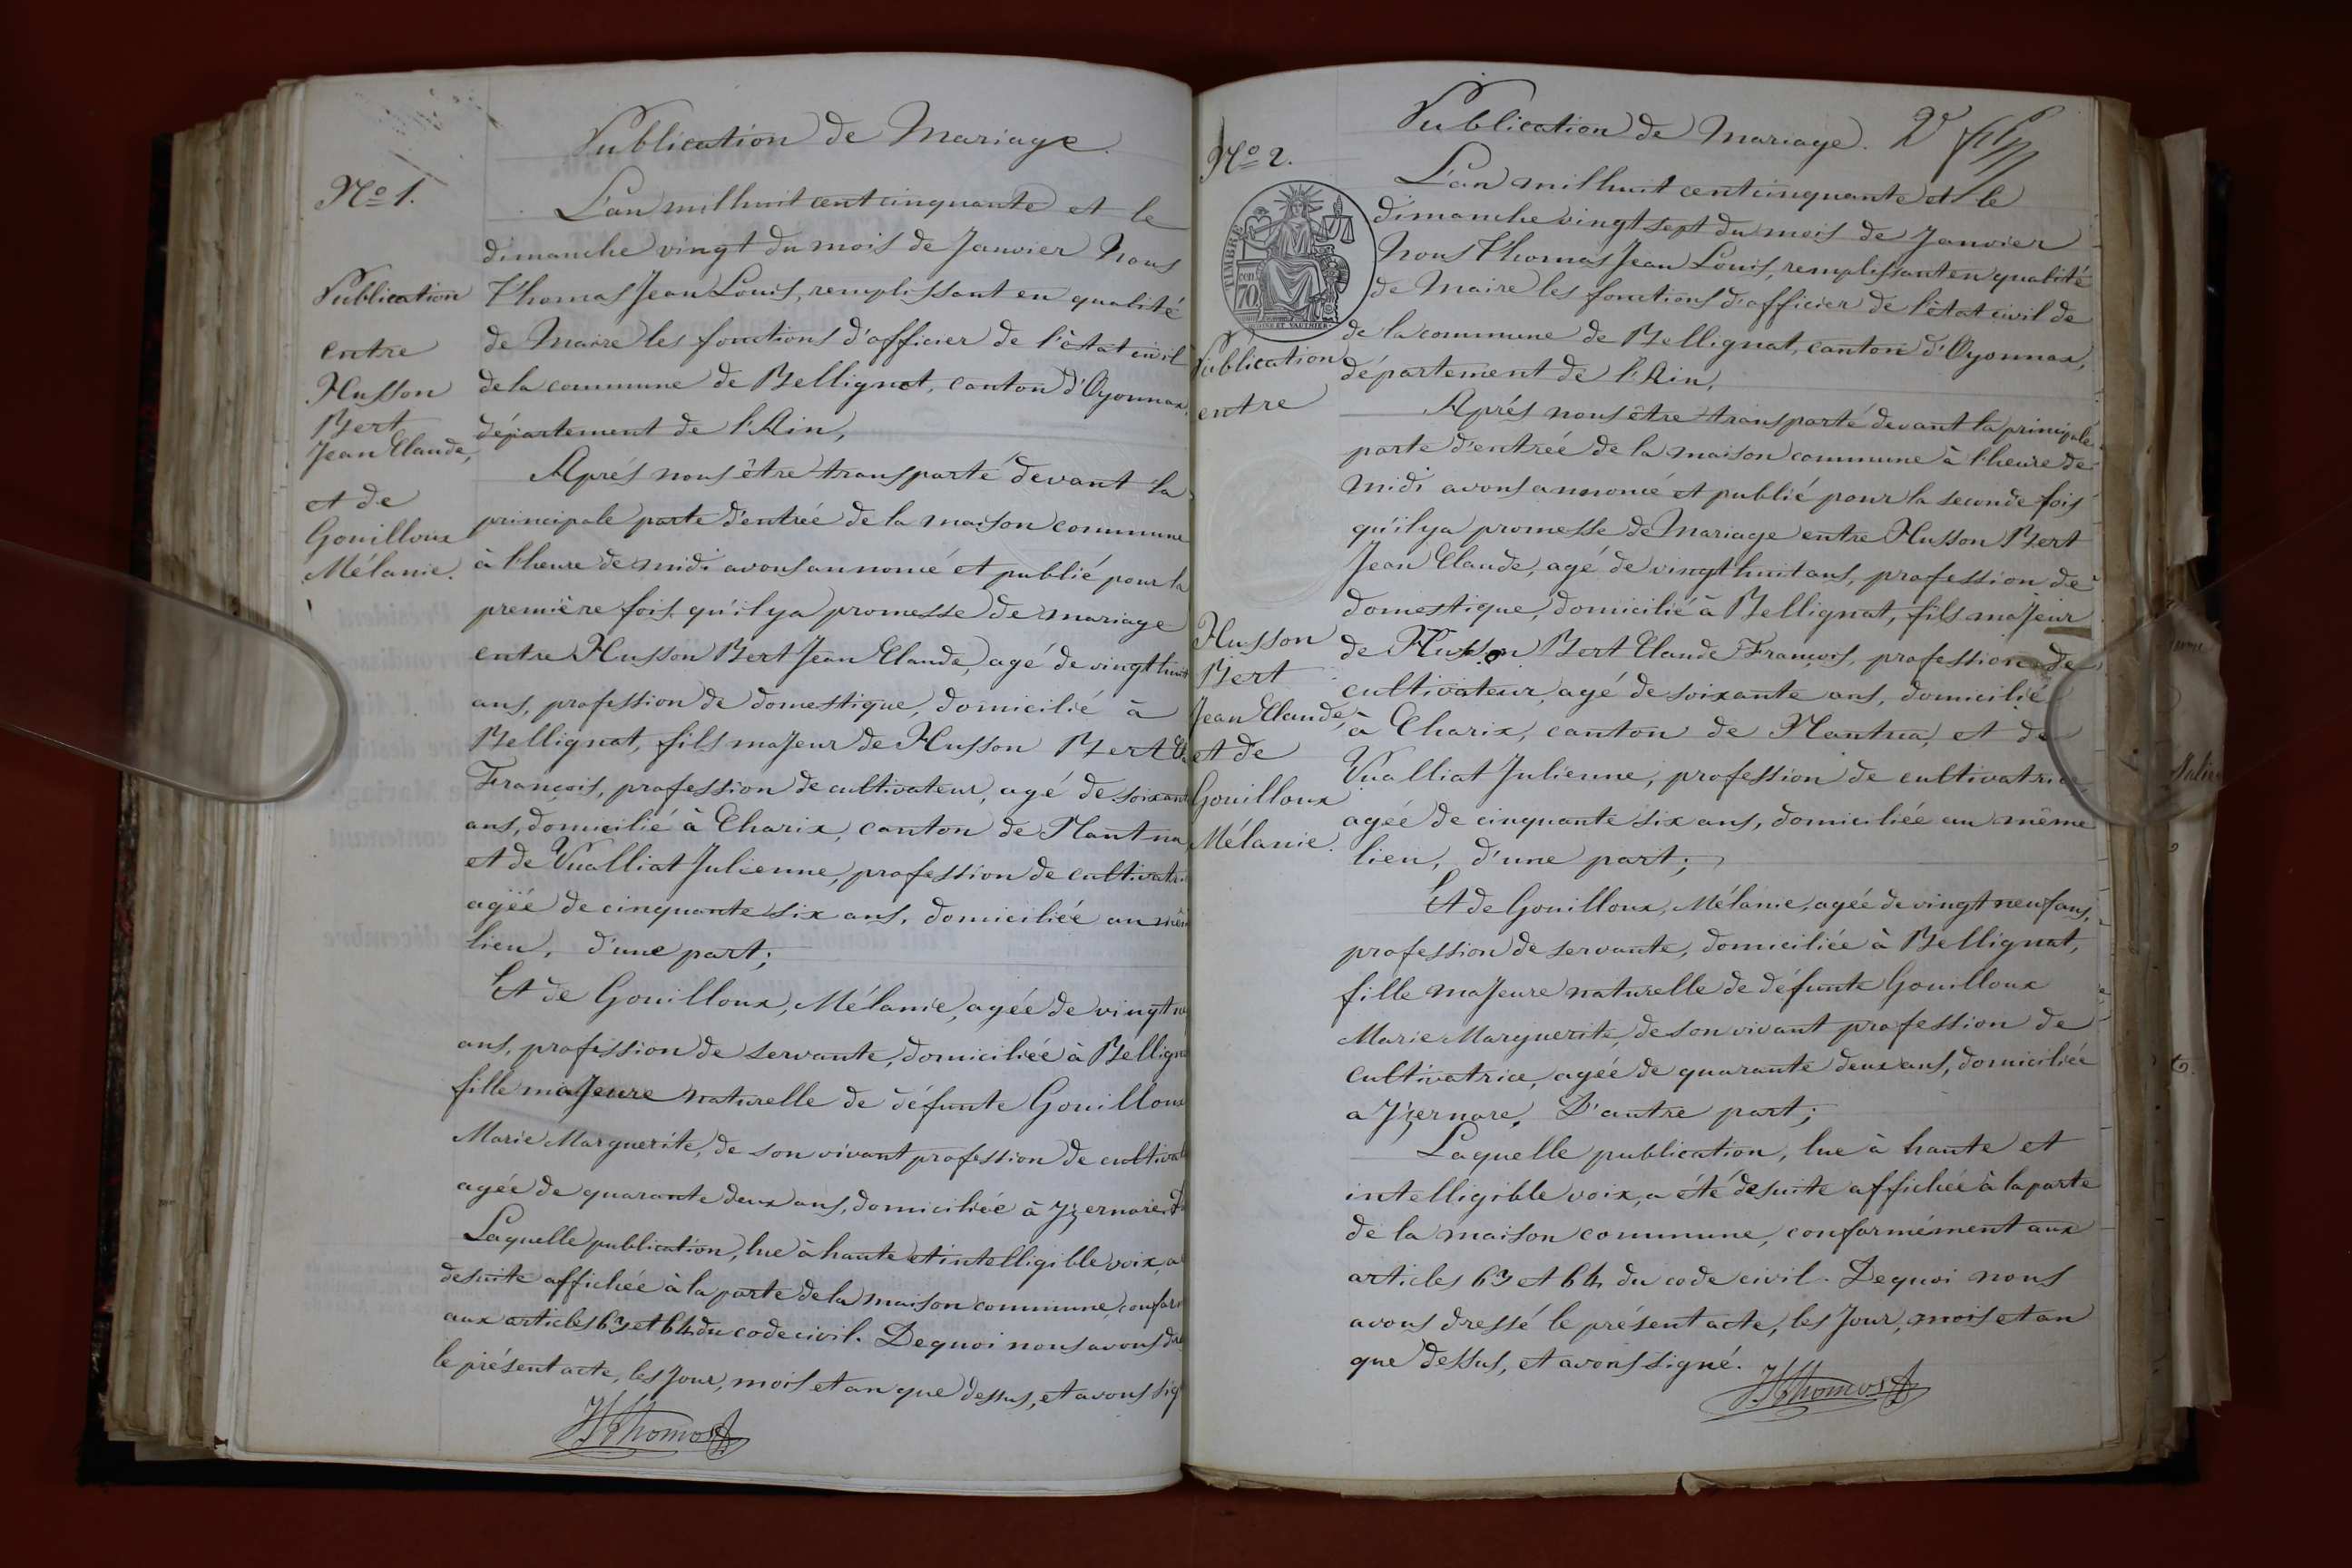 Publication de Mariage.
Nº 1.
Publication
entre
Husson
Bert
Jean Claude,
et de
Gouilloux
Mélanie.
L'an mil huit cent cinquante et le
dimanche vingt du mois de Janvier Nous
Thomas Jean Louis, remplissant en qualité
de Maire les fonctions d'officier de l'état civil
de la commune de Bellignat, canton d'Oyonnax,
département de l'Ain,
Aprés nous être transporté devant la
principale porte d'entrée de la maison commune
à l'heure de midi avons annoncé et publié pour la
première fois qu'il y a promesse de mariage
entre Husson Bert Jean Claude, agé de vingt huit
ans, profession de domestique, domicilié à
Bellignat, fils majeur de Husson Bert Cl
François, profession de cultivateur, agé de soixante
ans, domicilié à Charix, canton de Nantua,
et de Vualliat Julienne, profession de cultivatri
agée de cinquante six ans, domiciliée au mêm
lieu, d'une part;
Et de Gouilloux, Mélanie, agée de vingt ne
ans, profession de servante, domiciliée à Belligna
fille majeure naturelle de défunte Gouilloux
Marie Marguerite, de son vivant profession de cultivat
agée de quarante deux ans, domiciliée à Yzernore. d'
Laquelle publication, lue à haute et intelligible voix, a
desuite affichée à la porte de la maison commune, conform
aux articles 63 et 64 du code civil. De quoi nous avons dre
le présent acte, les jour, mois et an que dessus, et avons sig
JL Thomas
Publication de Mariage. 2e
Nº 2.
TIMBRE
70
Publication
entre
Husson
Bert
Jean Claude,
et de
Gouilloux
Mélanie.
L'an mil huit cent cinquante et le
dimanche vingt sept du mois de Janvier
Nous Thomas Jean Louis, remplissant en qualité
de Maire les fonctions d'officier de l'état civil de
de la commune de Bellignat, canton d'Oyonnax,
département de l'Ain,
Aprés nous être transporté devant la principale
porte d'entrée de la maison commune à l'heure de
midi avons annoncé et publié pour la seconde fois
qu'il y a promesse de Mariage entre Husson Bert
Jean Claude, agé de vingt huit ans, profession de
domestique, domicilié à Bellignat, fils majeur
de Husson Bert Claude François, profession de
cultivateur, agé de soixante ans, domicilié
à Charix, canton de Nantua, et de
Vualliat Julienne, profession de cultivatrice,
agée de cinquante six ans, domiciliée au même
lieu, d'une part;
Et de Gouilloux, Mélanie, agée de vingt neuf ans,
profession de servante, domiciliée à Bellignat,
fille majeure naturelle de défunte Gouilloux
Marie Marguerite, de son vivant profession de
cultivatrice, agée de quarante deux ans, domiciliée
a Yzernore, D'autre part;
Laquelle publication, lue à haute et
intelligible voix, a été desuite affichée à la porte
de la maison commune, conformément aux
articles 63 et 64 du code civil. De quoi nous
avons dressé le présent acte, les jour, mois et an
que dessus, et avons signé.
JL Thomas